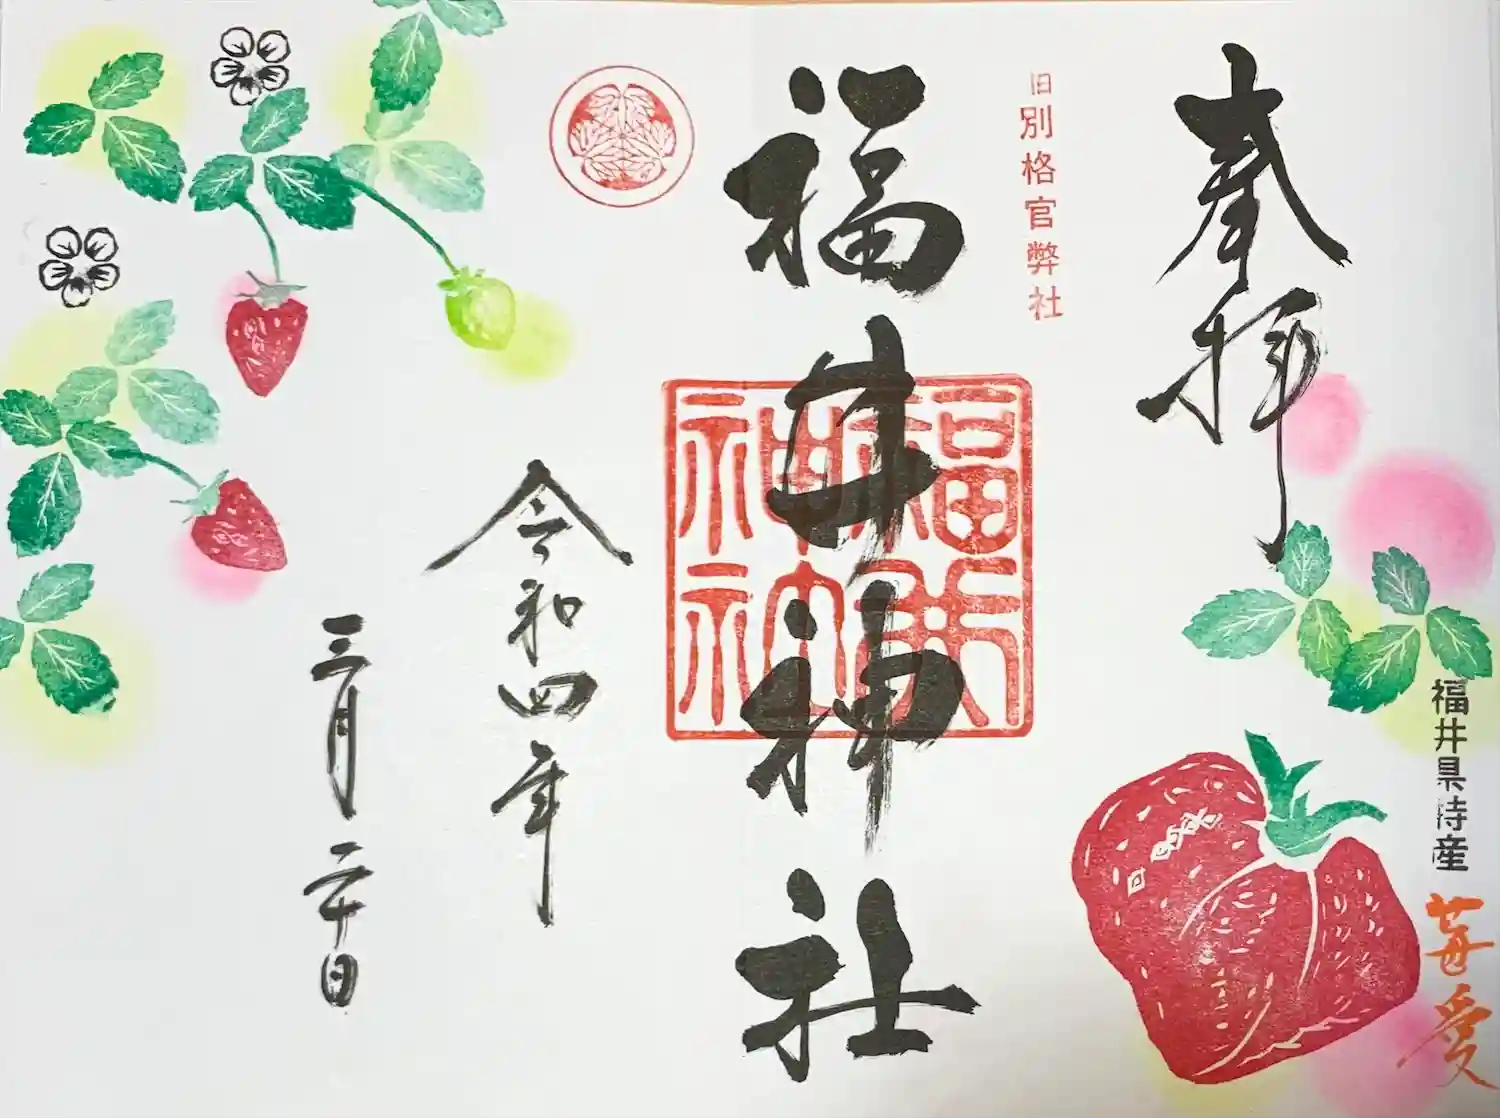 奉拝
福井県特産
苺愛
旧別格官弊社
福井神社
福井神社
令和四年
三月二十日